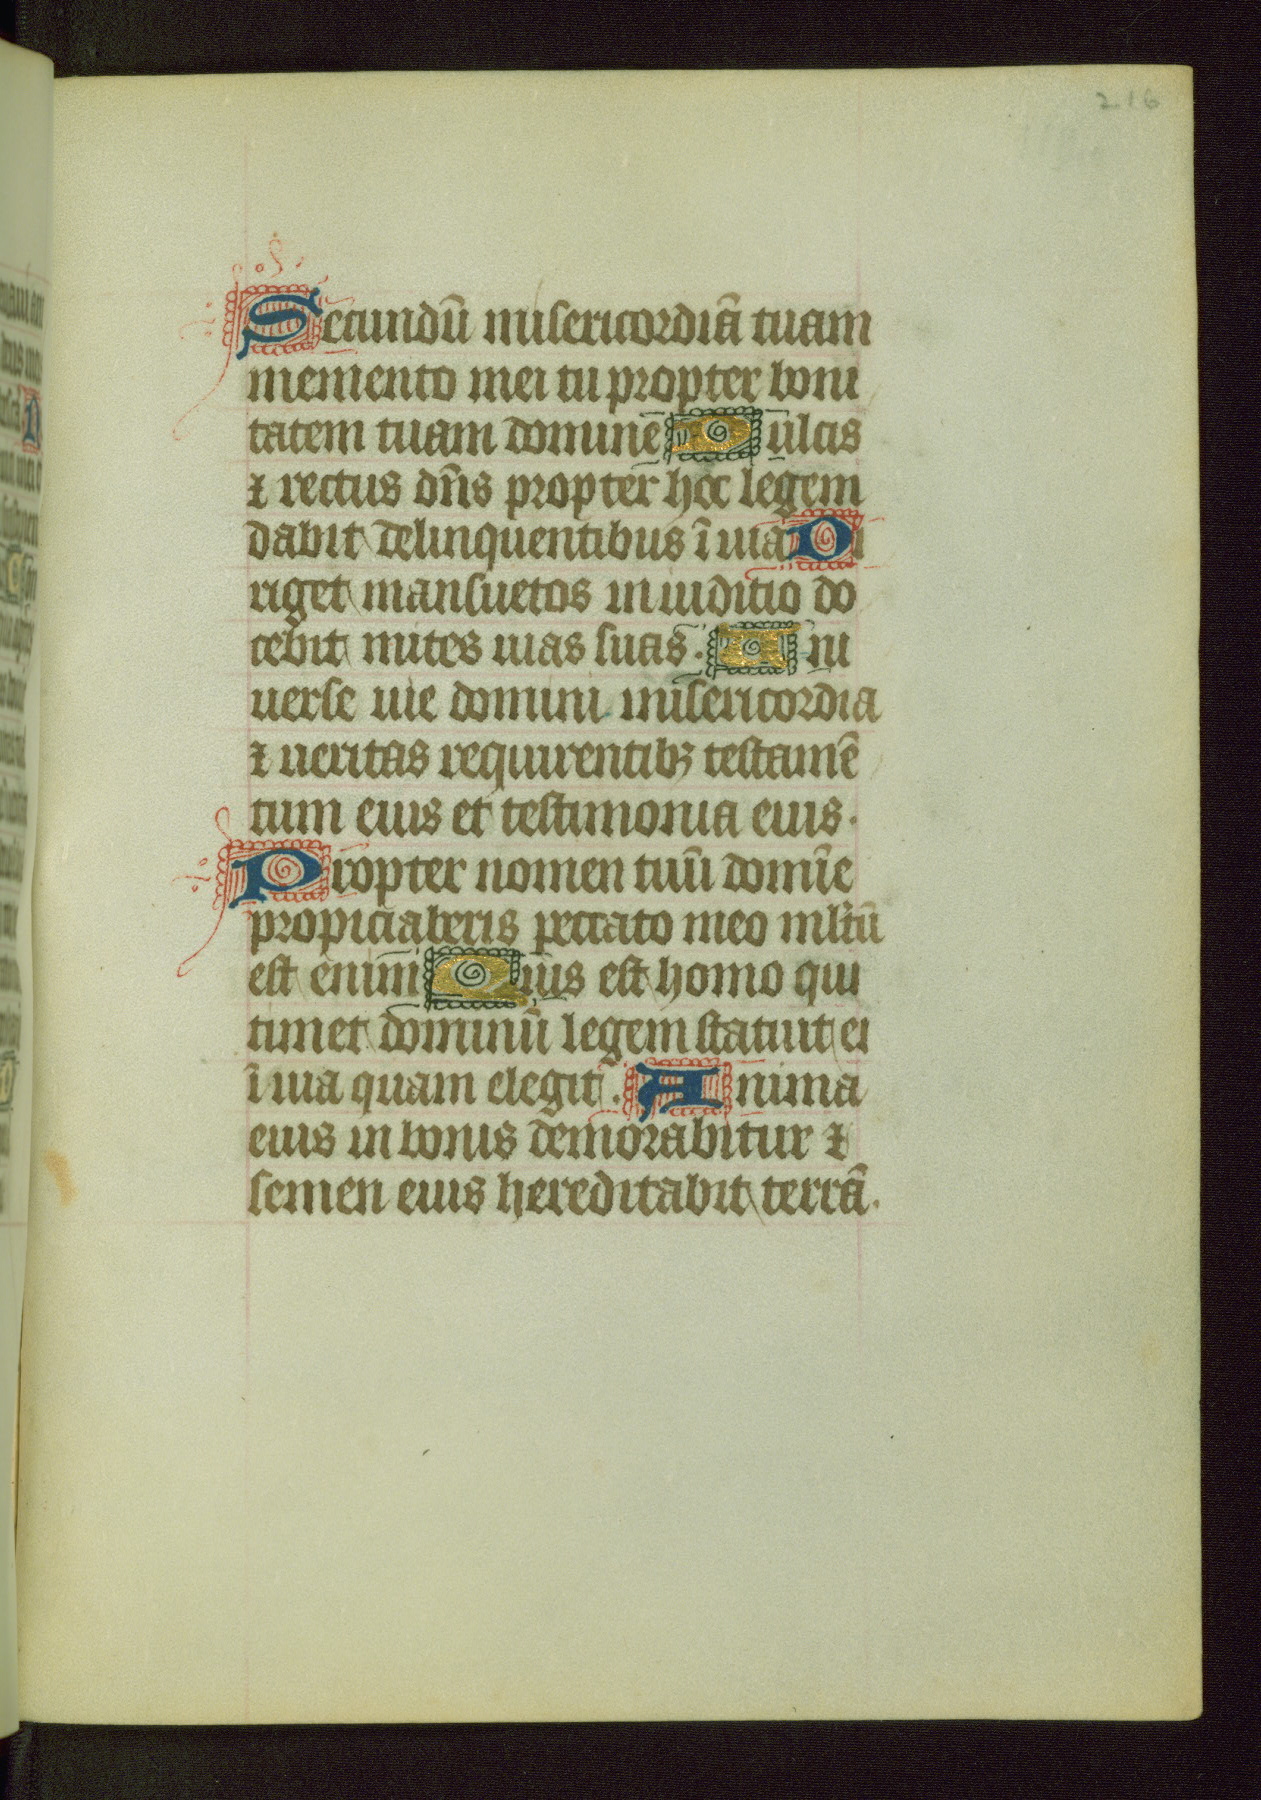 216
Secundū misericordiā tuam
memento mei tu propter boni
tatem tuam domine Dulcis
⁊ rectus dn̄s propter hoc legem
dabit delinquentibus ī uia Di
riget mansuetos in iuditio do
cebit mites uias suas. Uni
uerse uie domini misericordia
⁊ ueritas requirentibꝫ testamē
tum eius et testimonia eius.
Propter nomen tuū domīe
propiciaberis peccato meo mltū
est enim Quis est homo qui
timet dominū legem statuit ei
ī uia quam elegit. Anima
eius in bonis demorabitur ⁊
semen eius hereditabit terrā.